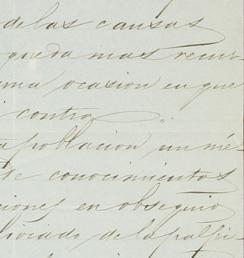 de las causas
queda mas recur
una ocasion en que
contra
poblacion un mé
de conocimientos
ciones en obsequio
de la